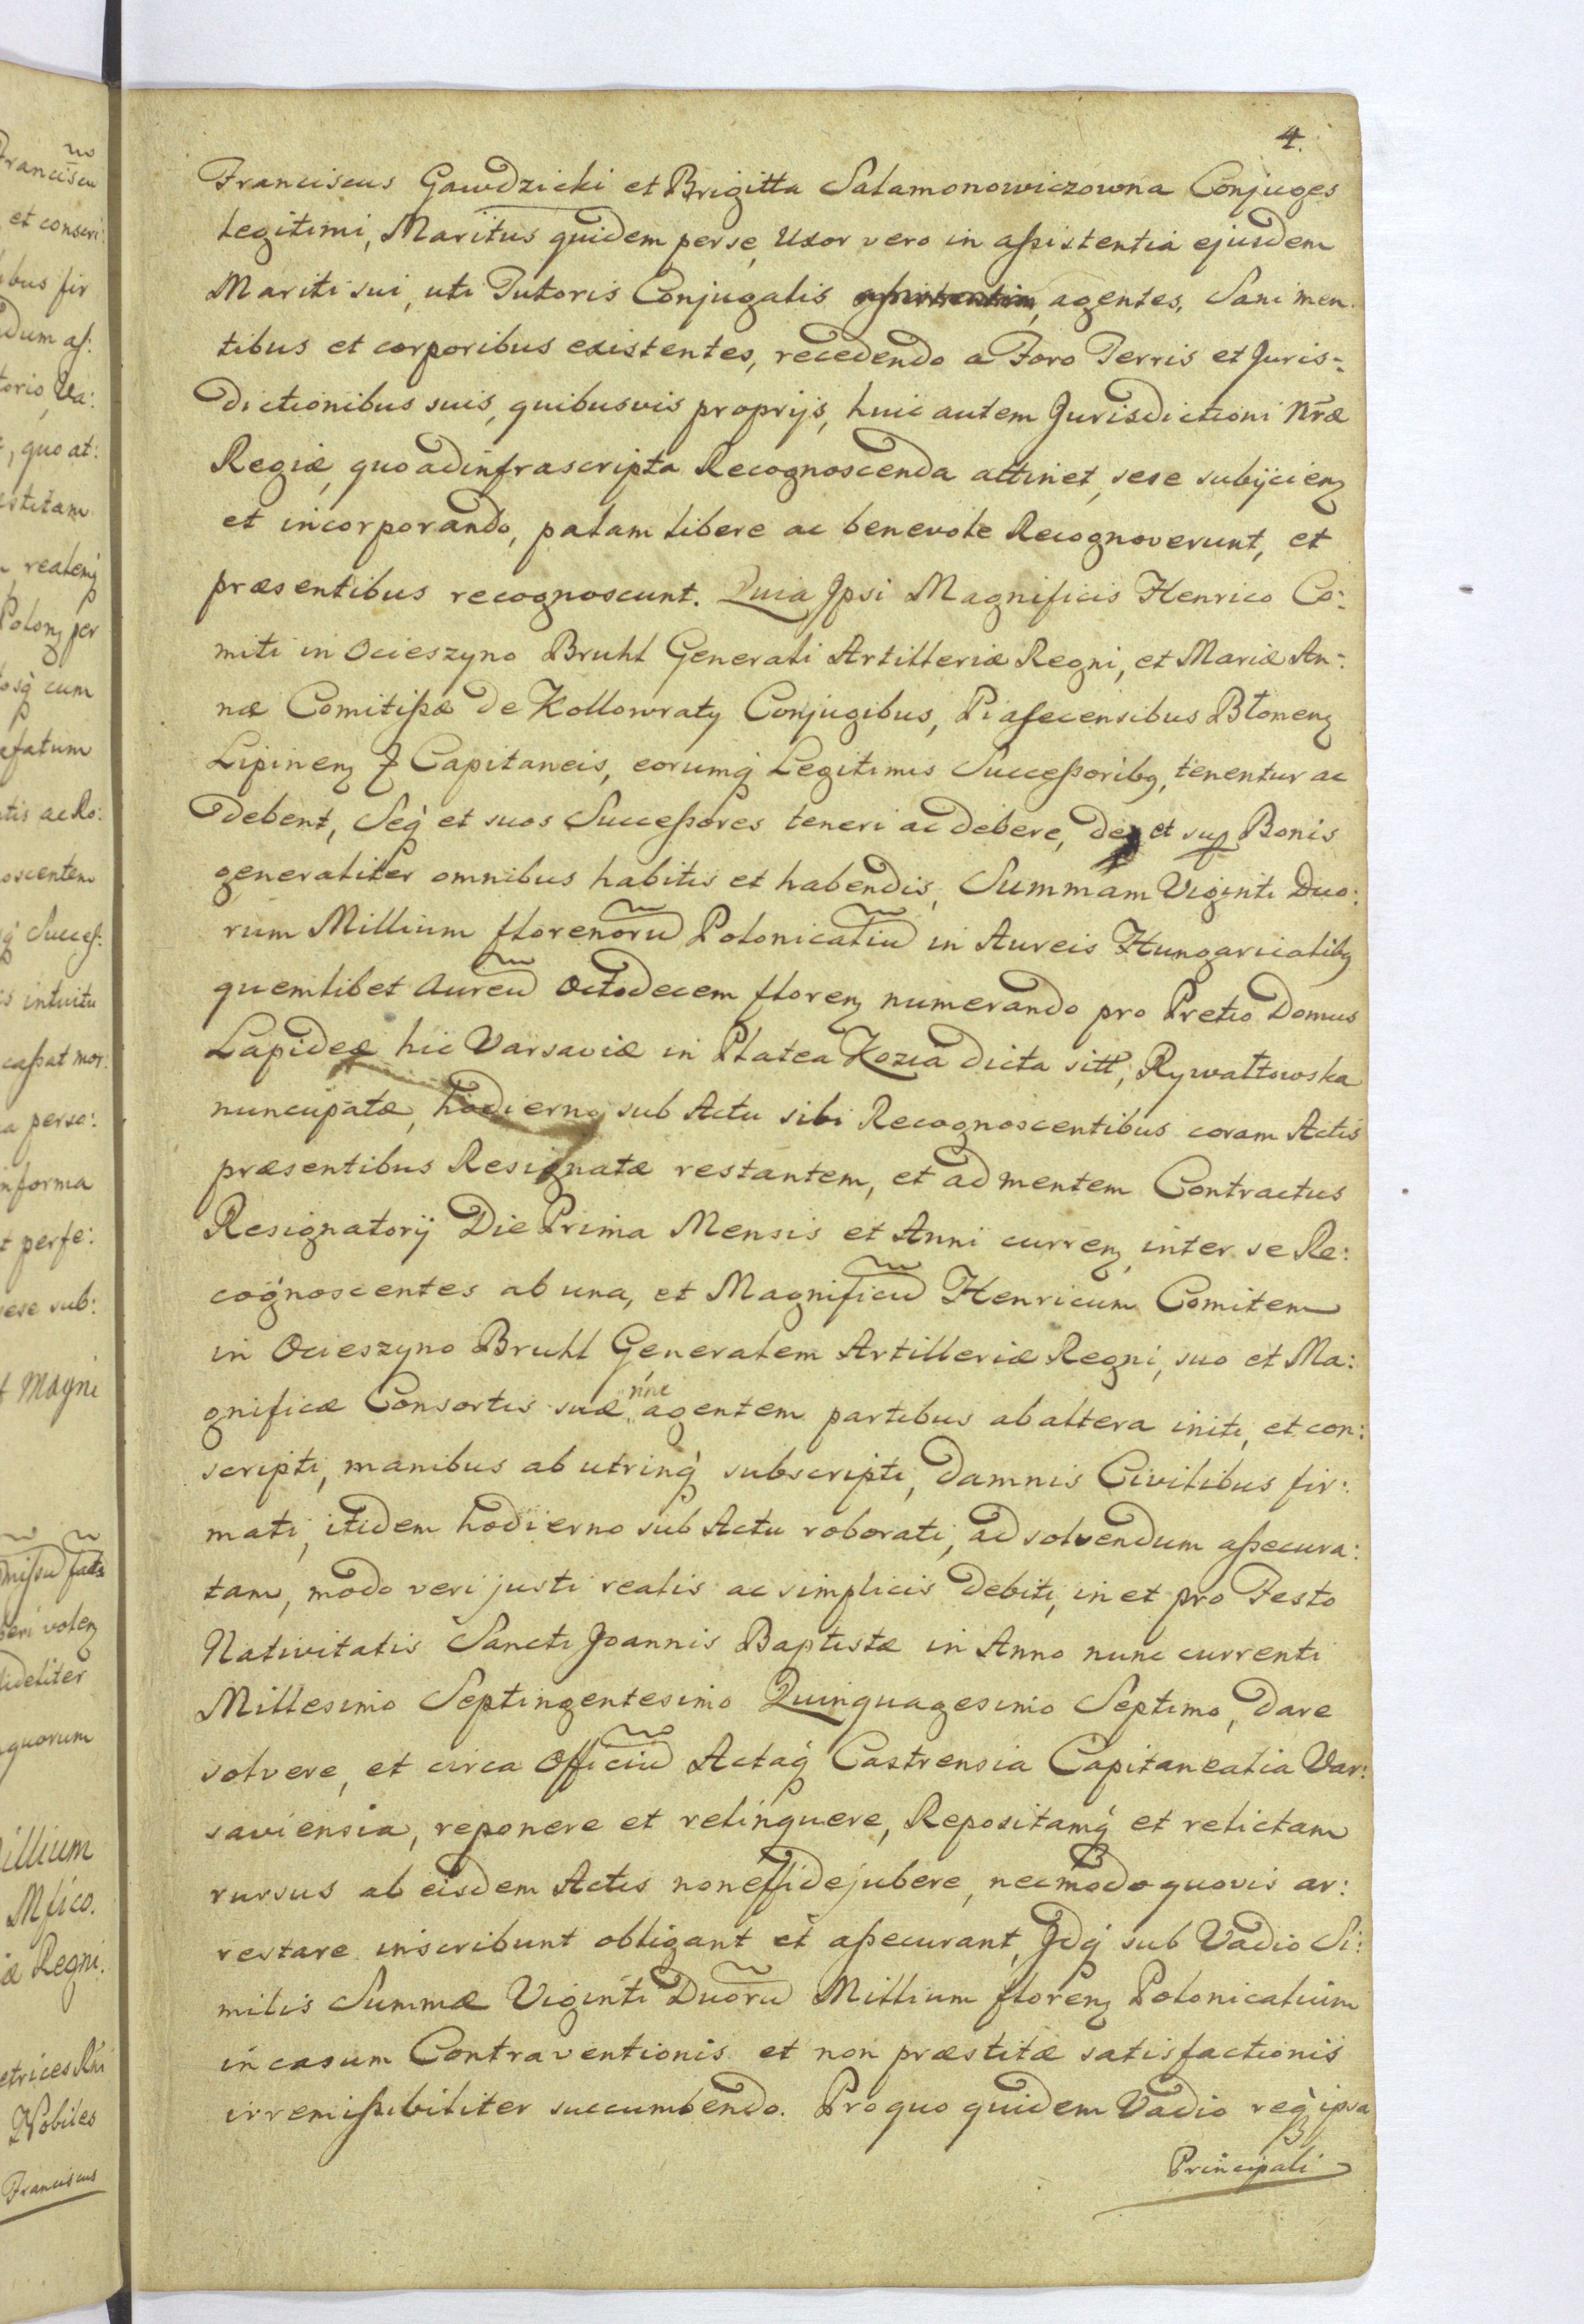 4.
Franciscus Gawdzicki et Brigitta Salamonowiczowna Conjuges
Legitimi, Maritus quidem per se, Uxor vero in assistentia ejusdem
Mariti sui, uti Tutoris Conjugalis agentes, Sani men
tibus et corporibus existentes, recedendo a Foro Terris et Juris=
dictionibus suis, quibusvis proprijs, huic autem Jurisdictioni Nrae
Regiae, quo ad infrascripta Recognoscenda attinet, sese subijcien
et incorporando, palam libere ac benevole Recognoverunt, et
praesentibus recognoscunt. Quia Ipsi Magnificis Henrico Co:
miti in Ocieszyno Bruhl Generali Artilleriae Regni, et Mariae An:
nae Comitissae de Kollowraty Conjugibus, Piasecensibus Błonen
Lipinen Capitaneis, eorumq Legitimis Successoribq, tenentur ac
debent, Seq et suos Successores teneri ac debere, de et sup Bonis
generaliter omnibus habitis et habendis, Summam Viginti Duo:
rum Millium florenorū Polonicaliū in Aureis Hungaricalibq
quemlibet Aureū Octodecem floren numerando pro Pretio Domus
Lapideae hic Varsaviae in Platea Kozia dicta sitt, Rywałtowska
nuncupatae, hodierno sub Actu sibi Recognoscentibus coram Actis
praesentibus Resignatae restantem, et ad mentem Contractus
Resignatorij Die Prima Mensis et Anni curren, inter se Re:
cognoscentes ab una, et Magnificū Henricum Comitem
in Ocieszyno Bruhl Generalem Artilleriae Regni, suo et Ma:
gnificae Consortis suae nne agentem partibus ab altera initi, et con:
scripti, manibus ab utrinq subscripti, damnis Civilibus fir:
mati, itidem hodierno sub Actu roborati, ad solvendum assecura:
tam, modo veri justi realis ac simplicis debiti, in et pro Festo
Nativitatis Sancti Joannis Baptistae in Anno nunc currenti
Millesimo Septingentesimo Quinquagesimo Septimo, dare
solvere, et circa Officiū Actaq Castrensia Capitanealia Var:
saviensia, reponere et relinquere, Repositamq et relictam
rursus ab eisdem Actis non effidejubere, nec modo quovis ar:
restare inscribunt obligant et assecurant, Idq sub Vadio Si:
milis Summae Viginti Duorū Millium floren Polonicalium
in casum Contraventionis et non praestitae satisfactionis
irremissibiliter succumbendo. Pro quo quidem Vadio req ipsa
Principali